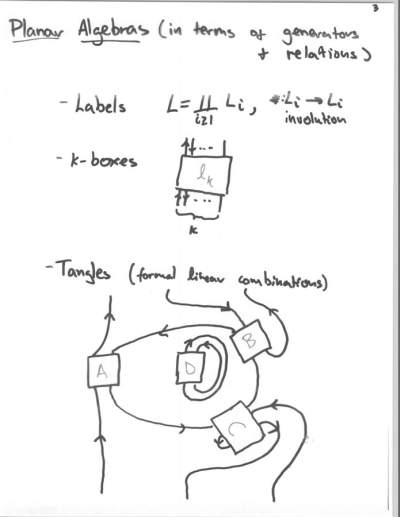 3
Planar Algebras (in terms of generators
+ relations)
- Labels L = ∐ Li, *: Li → Li
i≥1 involution
- k-boxes ...
lk
...
k
- Tangles (formal linear combinations)
B
A D
C